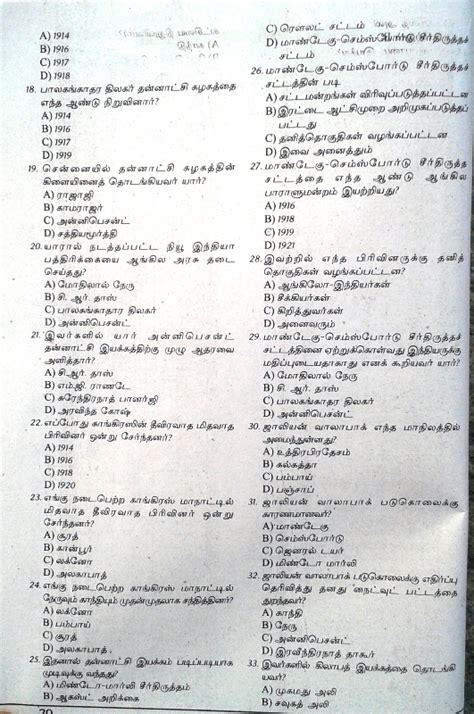 A) 1914
B) 1916
C) 1917
D) 1918
18. பாலகங்காதர திலகர் தன்னாட்சி கழகத்தை
எந்த ஆண்டு நிறுவினார்?
A) 1914
B) 1916
C) 1917
D) 1919
19. சென்னையில் தன்னாட்சி கழகத்தின்
கிளையினைத் தொடங்கியவர் யார்?
A) ராஜாஜி
B) காமராஜர்
C) அன்னிபெசன்ட்
D) சத்தியமூர்த்தி
20. யாரால் நடத்தப்பட்ட நியூ இந்தியா
பத்திரிக்கையை ஆங்கில அரசு தடை
செய்தது?
A) மோதிலால் நேரு
B) சி. ஆர். தாஸ்
C) பாலகங்காதர திலகர்
D) அன்னிபெசன்ட்
21. இவர்களில் யார் அன்னிபெசன்ட்
தன்னாட்சி இயக்கத்திற்கு முழு ஆதரவை
அளித்தார்?
A) சி.ஆர். தாஸ்
B) எம்.ஜி. ராணடே
C) சுரேந்திரநாத் பானர்ஜி
D) அரவிந்த கோஷ்
22. எப்போது காங்கிரஸின் தீவிரவாத மிதவாத
பிரிவினர் ஒன்று சேர்ந்தனர்?
A) 1914
B) 1916
C) 1918
D) 1920
23. எங்கு நடைபெற்ற காங்கிரஸ் மாநாட்டில்
மிதவாத தீவிரவாத பிரிவினர் ஒன்று
சேர்ந்தனர்?
A) சூரத்
B) கான்பூர்
C) லக்னோ
D) அலகாபாத்
24. எங்கு நடைபெற்ற காங்கிரஸ் மாநாட்டில்
நேருவும் காந்தியும் முதன்முதலாக சந்தித்தினர்?
A) லக்னோ
B) பம்பாய்
C) சூரத்
D) அலகாபாத்
25. இதனால் தன்னாட்சி இயக்கம் படிப்படியாக
முடிவுக்கு வந்தது?
A) மிண்டோ-மார்லி சீர்திருத்தம்
B) ஆகஸ்ட் அறிக்கை
20
C) ரௌலட் சட்டம்
D) மாண்டேகு-செம்ஸ்போர்டு சீர்திருத்தச்
சட்டம்
26. மாண்டேகு-செம்ஸ்போர்டு சீர்திருத்த
சட்டத்தின் படி
A) சட்டமன்றங்கள் விரிவுப்படுத்தப்பட்டன
B) இரட்டை ஆட்சிமுறை அறிமுகப்படுத்தப்
பட்டது
C) தனித்தொகுதிகள் வழங்கப்பட்டன
D) இவை அனைத்தும்
27. மாண்டேகு-செம்ஸ்போர்டு சீர்திருத்த
சட்டத்தை எந்த ஆண்டு ஆங்கில
பாராளுமன்றம் இயற்றியது?
A) 1916
B) 1918
C) 1919
D) 1921
28. இவற்றில் எந்த பிரிவினருக்கு தனித்
தொகுதிகள் வழங்கப்பட்டன?
A) ஆங்கிலோ-இந்தியர்கள்
B) சீக்கியர்கள்
C) கிறித்துவர்கள்
D) அனைவரும்
29. மாண்டேகு-செம்ஸ்போர்டு சீர்திருத்தச்
சட்டத்தினை ஏற்றுக்கொள்வது இந்தியருக்கு
மதிப்புடையதாகாது எனக் கூறியவர் யார்?
A) மோதிலால் நேரு
B) சி. ஆர். தாஸ்
C) பாலகங்காதர திலகர்
D) அன்னிபெசன்ட்
30. ஜாலியன் வாலாபாக் எந்த மாநிலத்தில்
அமைந்துள்ளது?
A) உத்திரபிரதேசம்
B) கல்கத்தா
C) பம்பாய்
D) பஞ்சாப்
31. ஜாலியன் வாலாபாக் படுகொலைக்கு
காரணமானவர்?
A) மாண்டேகு
B) செம்ஸ்போர்டு
C) ஜெனரல் டயர்
D) மிண்டோ மார்லி
32. ஜாலியன் வாலாபாக் படுகொலைக்கு எதிர்ப்பு
தெரிவித்து தனது நைட்வுட் பட்டத்தை
துறந்தவர்?
A) காந்தி
B) நேரு
C) அன்னிபெசன்ட்
D) இரவீந்திரநாத் தாகூர்
33. இவர்களில் கிலாபத் இயக்கத்தை தொடங்கி
யவர்?
A) முகமது அலி
B) சவுகத் அலி